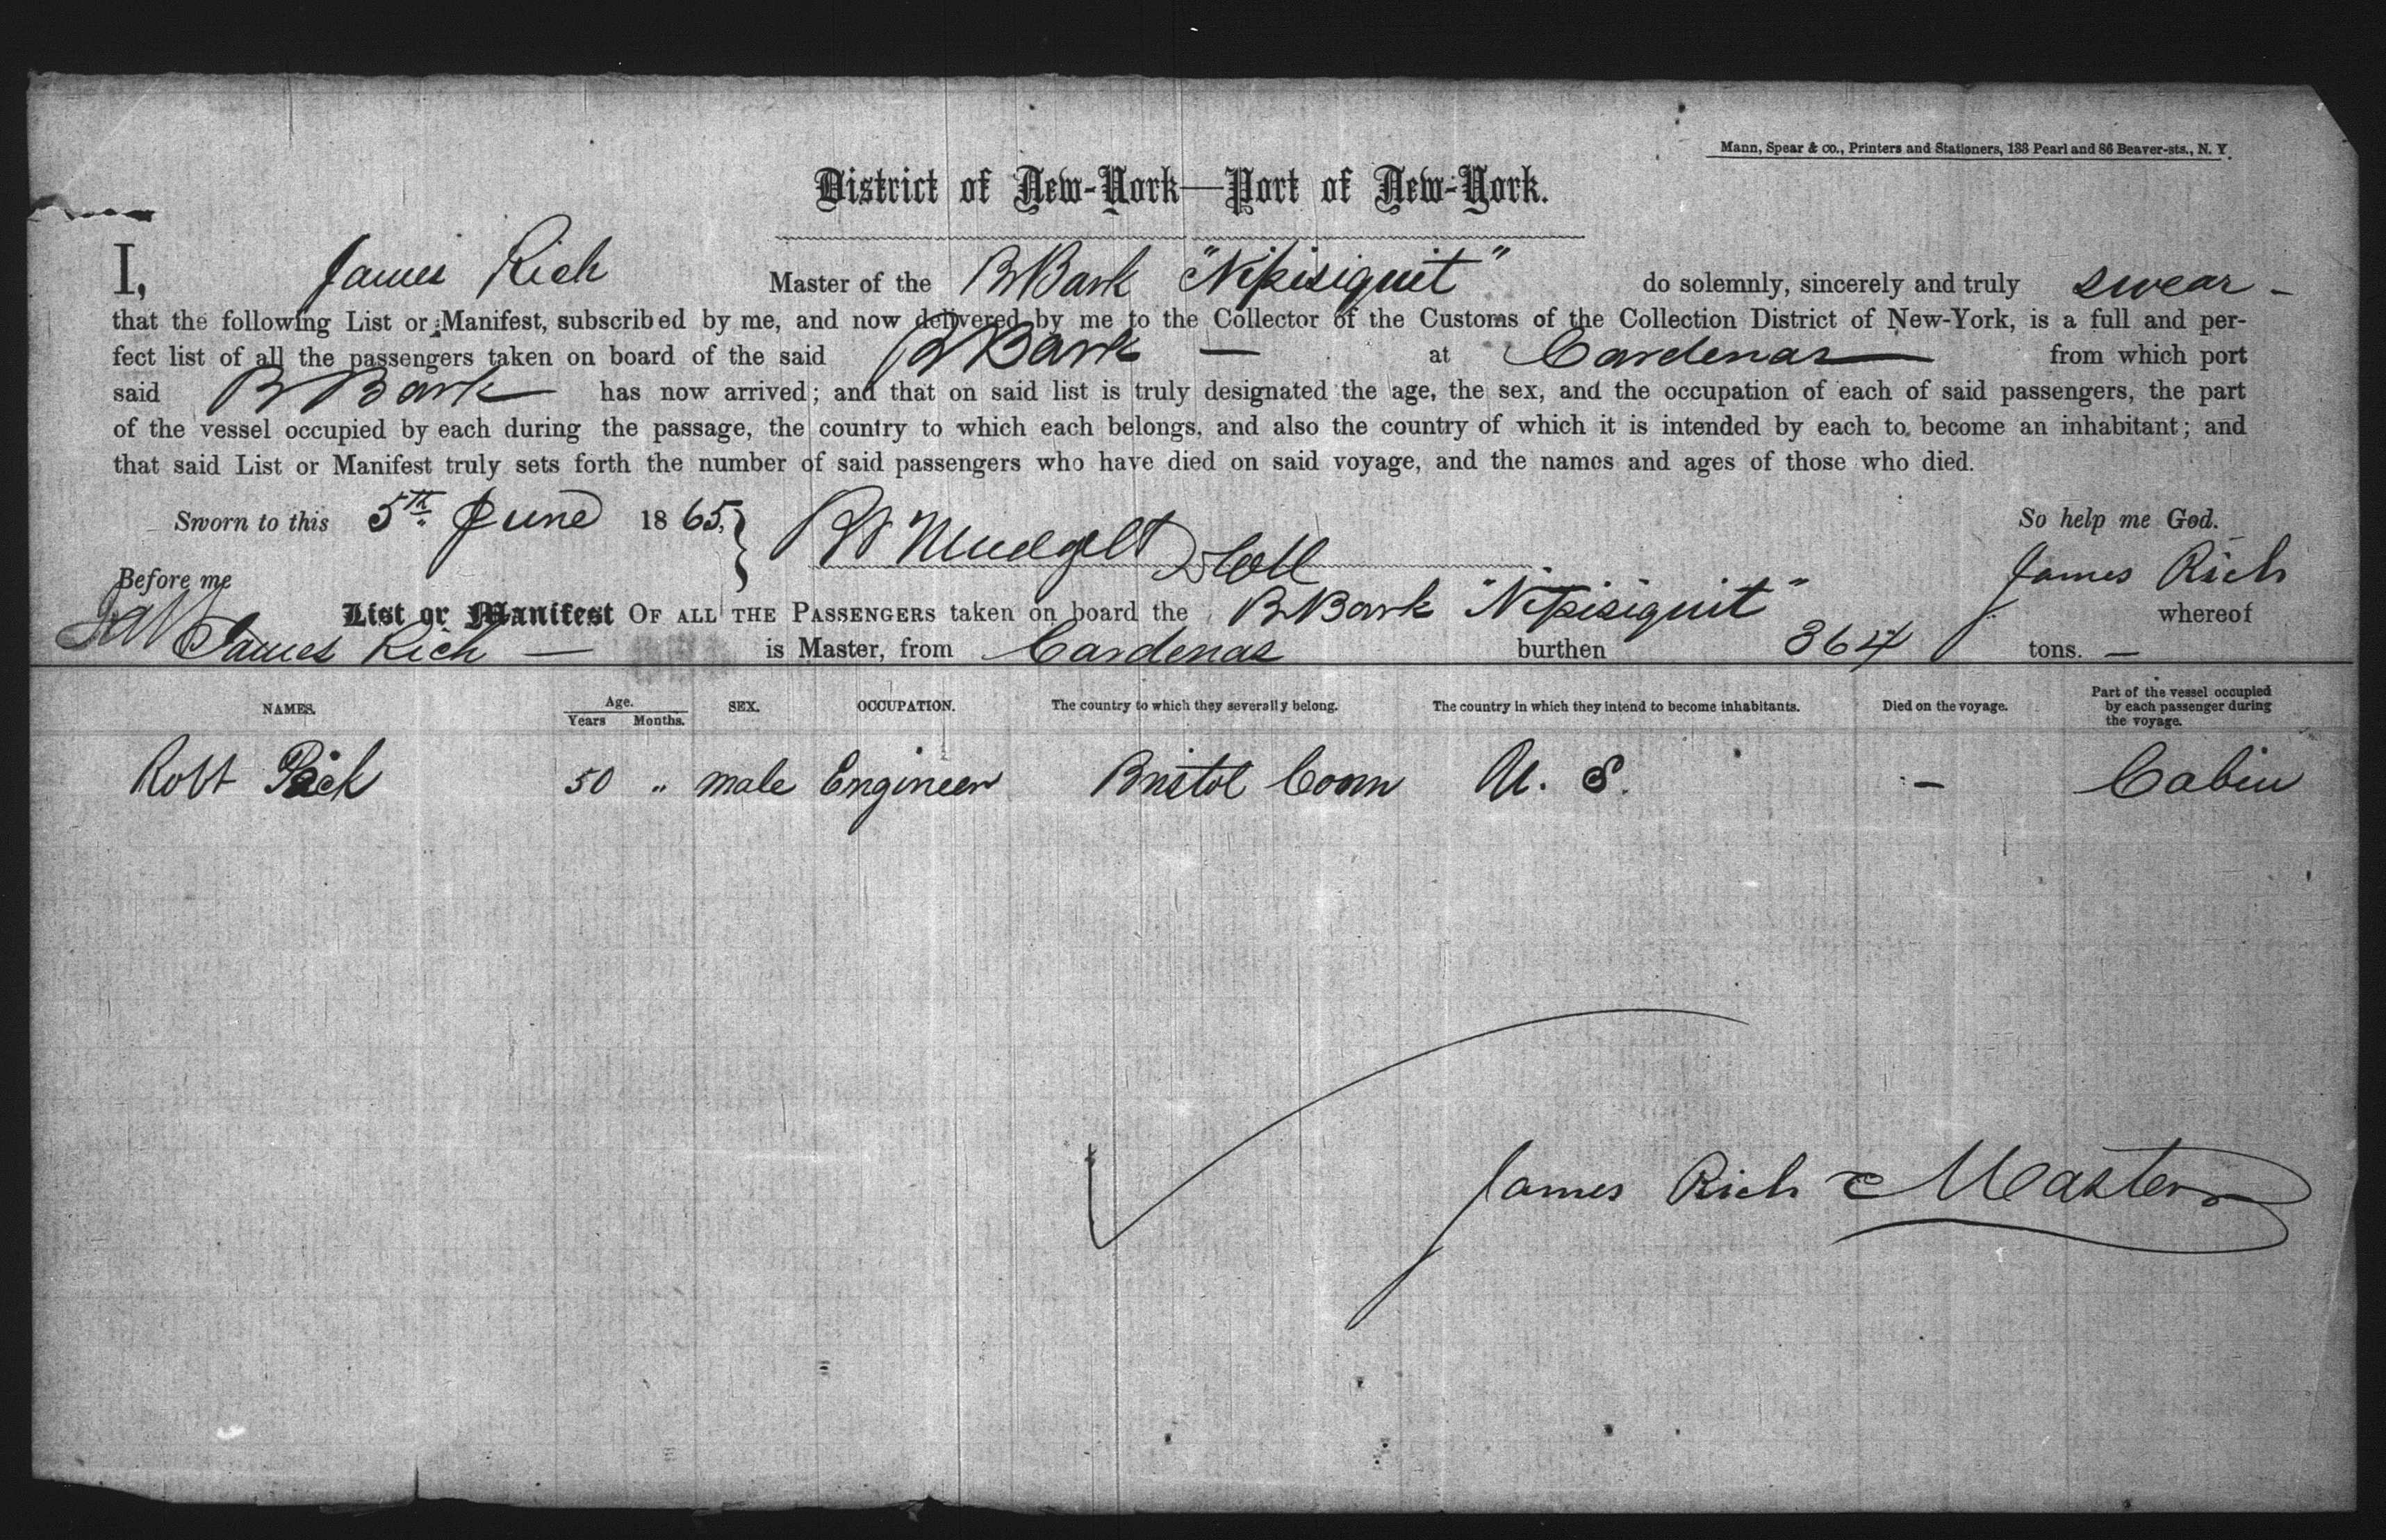 Mann, Spear & co., Printers and Stationers, 133 Pearl and 86 Beaver-sts., N. Y.
District of New-York—Port of New-York.
I, James Rich Master of the B Bark "Nipisiquit" do solemnly, sincerely and truly swear -
that the following List or Manifest, subscribed by me, and now delivered by me to the Collector of the Customs of the Collection District of New-York, is a full and per-
fect list of all the passengers taken on board of the said B Bark — at Cardenas from which port
said B Bark has now arrived; and that on said list is truly designated the age, the sex, and the occupation of each of said passengers, the part
of the vessel occupied by each during the passage, the country to which each belongs, and also the country of which it is intended by each to become an inhabitant; and
that said List or Manifest truly sets forth the number of said passengers who have died on said voyage, and the names and ages of those who died.
Sworn to this 5th June 1865, So help me God.
Before me James Rich
List or Manifest OF ALL THE PASSENGERS taken on board the B Bark "Nipisiquit" whereof
James Rich — is Master, from Cardenas burthen 364 tons. —
NAMES. Age. Years Months. SEX. OCCUPATION. The country to which they severally belong. The country in which they intend to become inhabitants. Died on the voyage. Part of the vessel occupied by each passenger during the voyage.
Robt 50 " male Engineer Bristol Conn U. S. — Cabin
James Rich Master